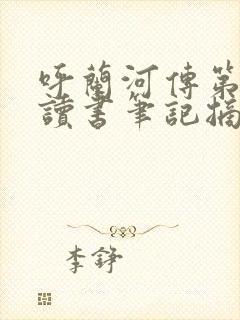 呼蘭河傳第
讀書筆記摘
李錚